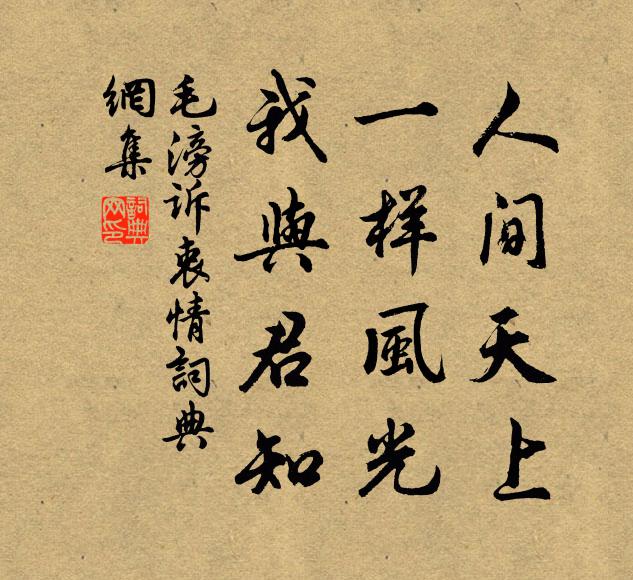 人间天上
一样風光
我與君知
毛滂诉衷情詞典
網集
詞典
网印